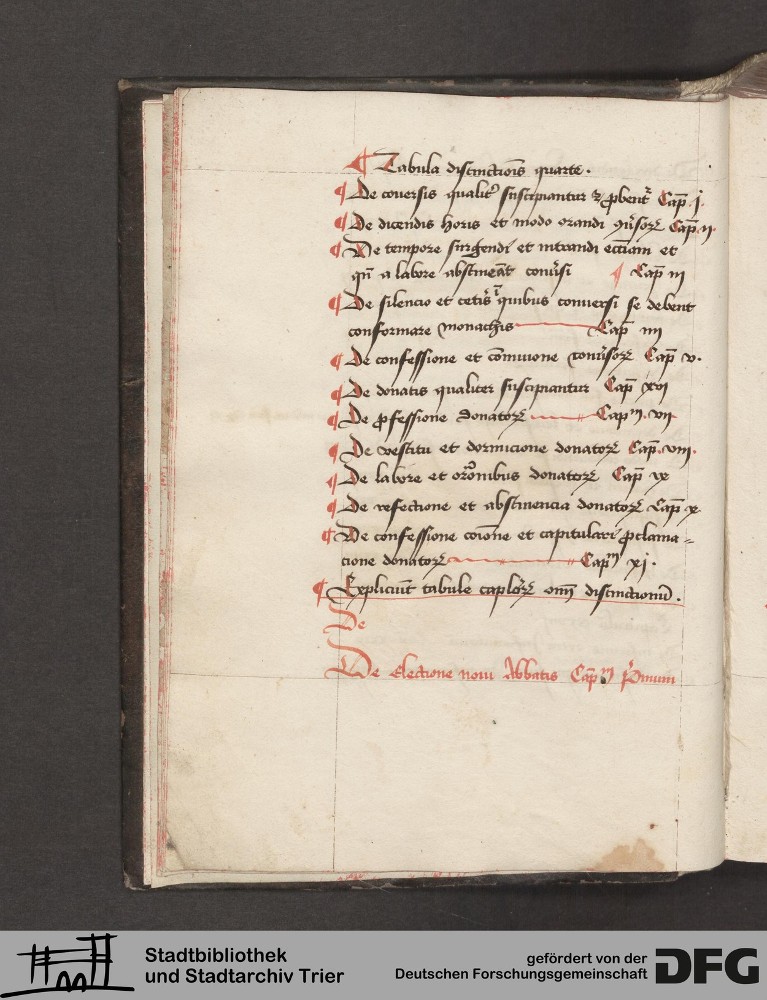 ¶ Tabula distinctiōis quarte .
¶ De cōuersis qualit᷑ suscipiantur ⁊ ꝓbent᷑ Cap̄ j.
¶ De dicendis horis et modo orandi ꝯūsoꝝ Cap̄ ij.
¶ De tempore surgendi et intrandi ecc̄iam et
qn̄ a labore abstineāt conūsi ¶ Cap̄ iij
¶ De silencio et cetīs ī quibus conuersi se debent
conformare monachis Cap̄ iiij
¶ De confessione et cōmunione conūsoꝝ Cap̄ v.
¶ De donatis qualiter suscipiantur Cap̄ xvi
¶ De ꝓfessione donatoꝝ Cap̄m. vij
¶ De vestitu et dormicione donatoꝝ Cap̄. viij.
¶ De labore et orōnibus donatoꝝ Cap̄ ix
¶ De refectione et abstinencia donatoꝝ Cap̄ x
¶ De confessione cōione et capitulari ꝓclama=
cione donatoꝝ Cap̄m xj.
¶ Expliciūt tabule caplōꝝ oīm distinctionū .
De
De Electione noui Abbatis Cap̄m Pīmum
Stadtbibliothek
und Stadtarchiv Trier
gefördert von der
Deutschen Forschungsgemeinschaft
DFG